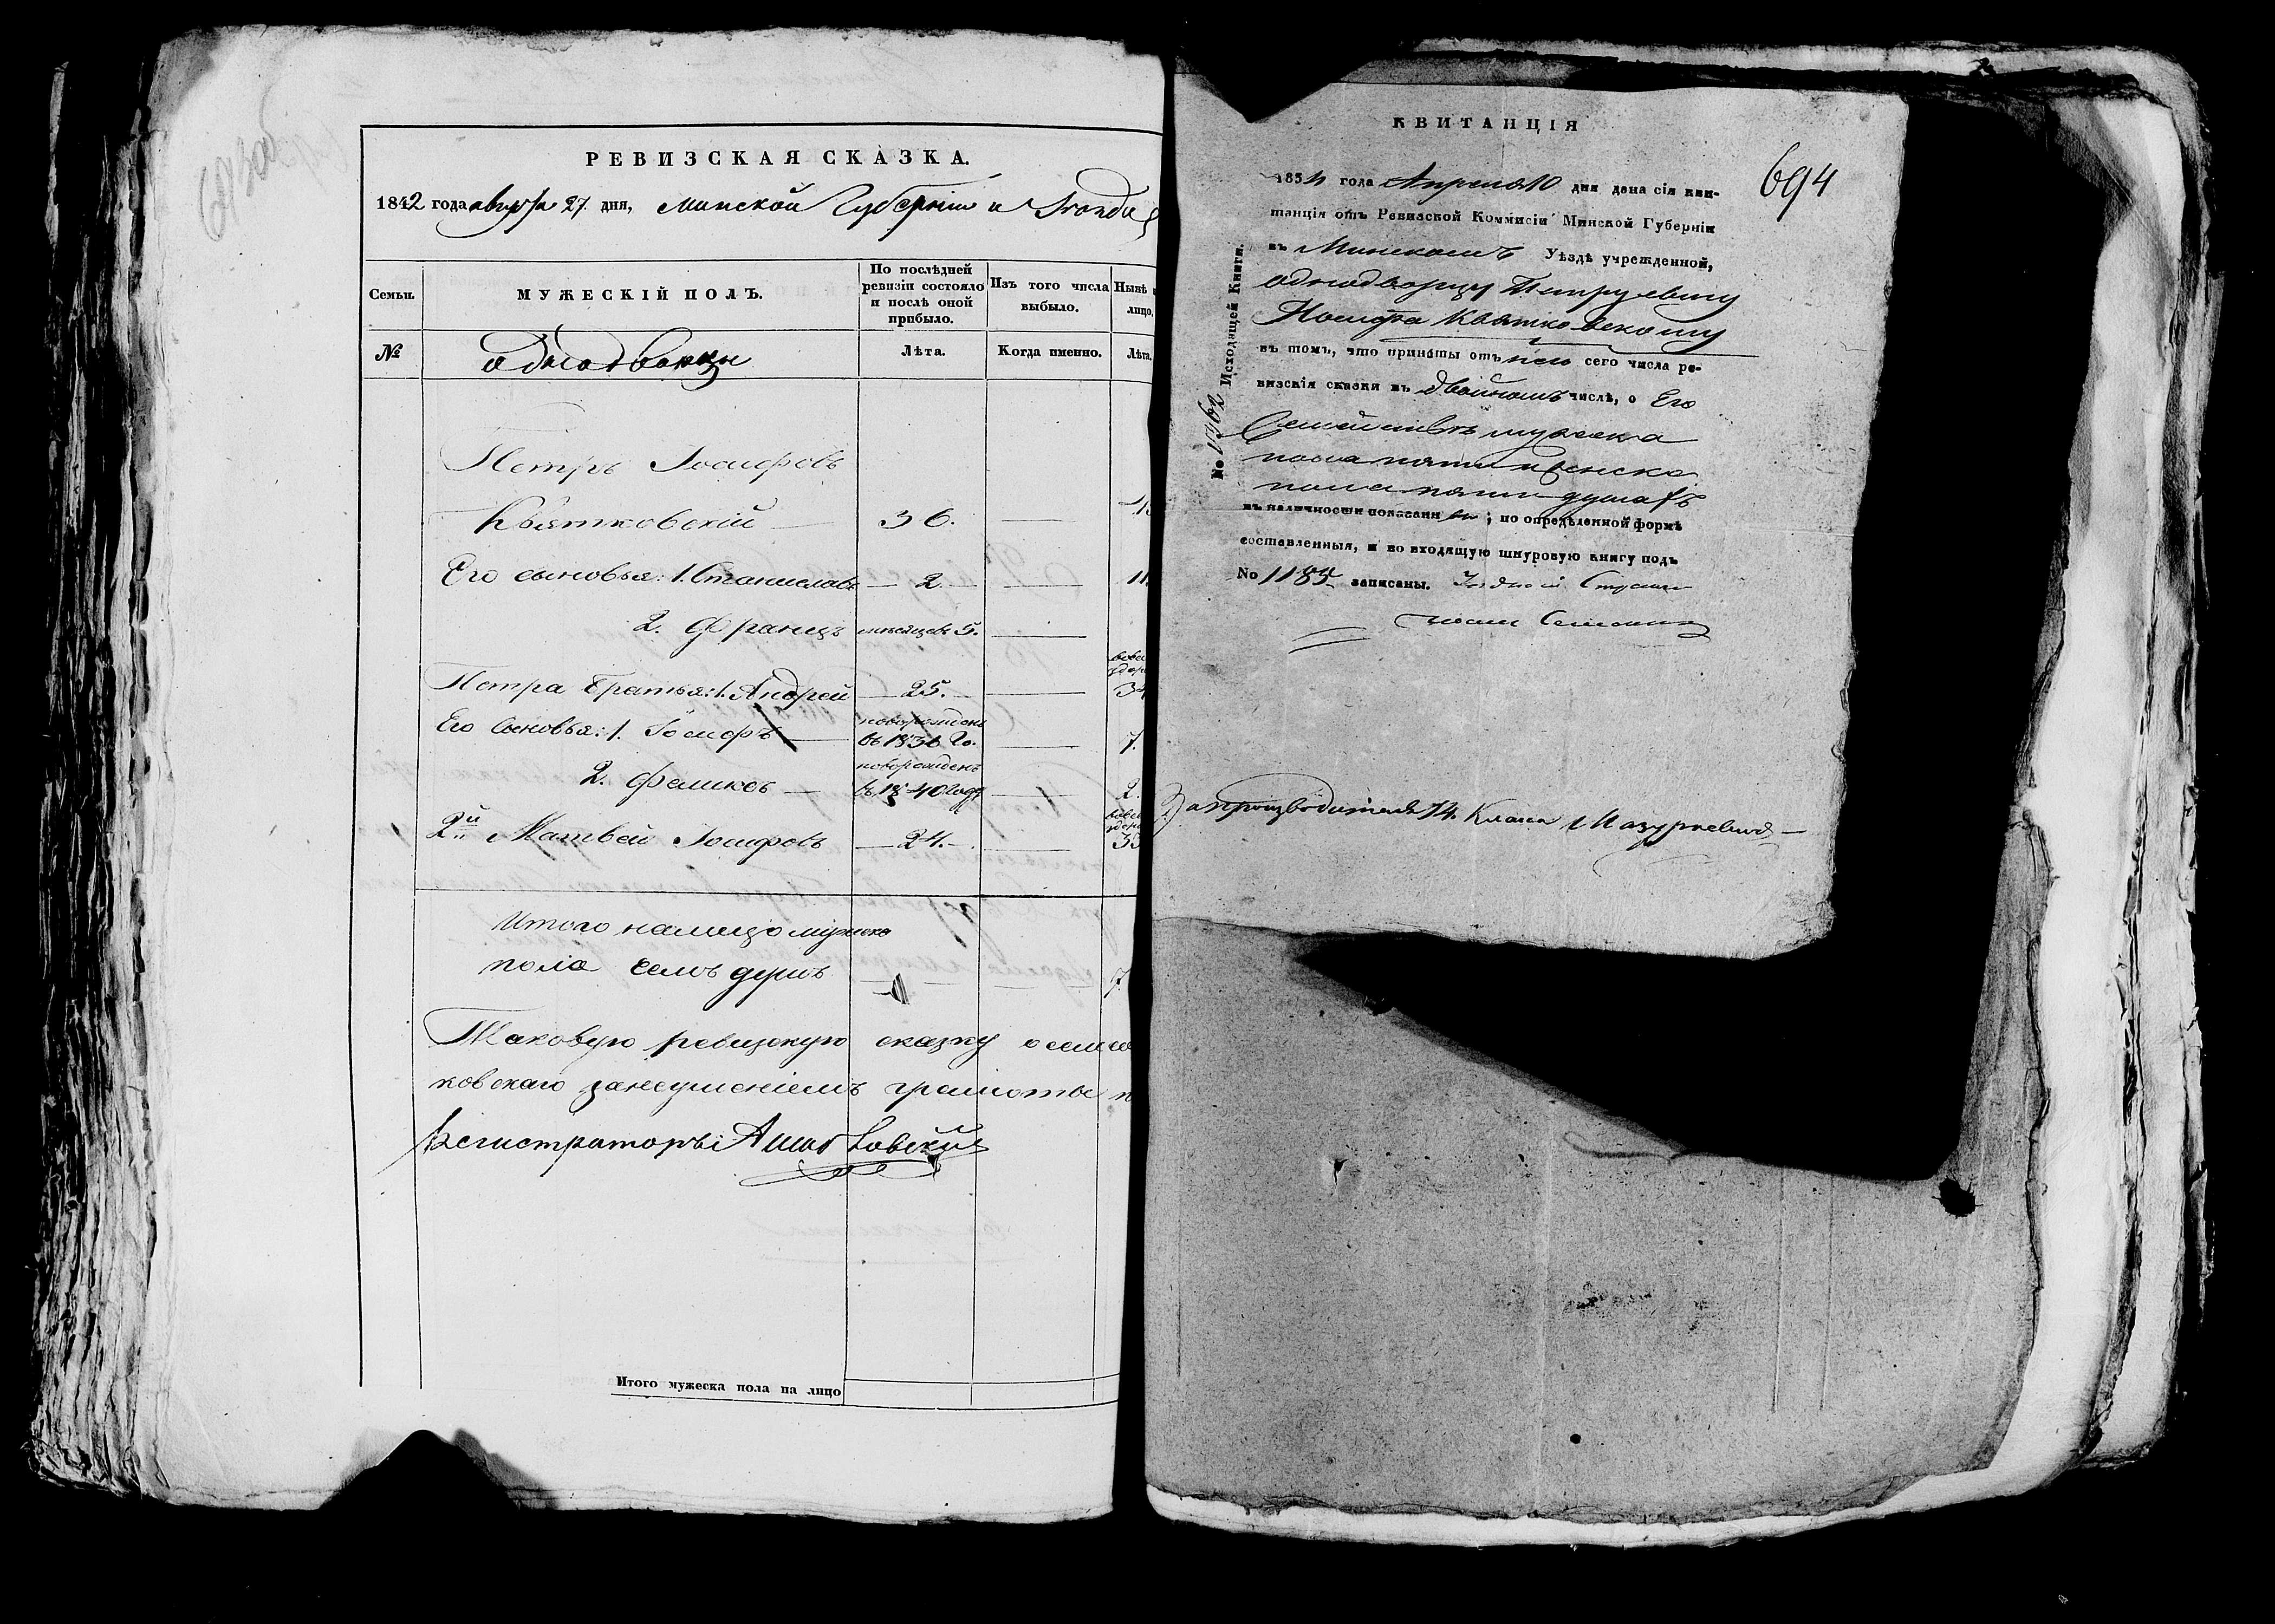 РЕВИЗСКАЯ СКАЗКА.
1842 года августа 27. дня, Минской Губерніи и
Семьи.
МУЖЕСКІЙ ПОЛЪ.
По послѣдней ревизіи состояло и послѣ оной прибыло.
Изъ того числа выбыло.
Нынѣ
лицо.
№
однодворцы
Лѣта.
Когда именно.
Лѣта.
Петръ Іосифовъ
Квятковскій 36.
Его сыновья: 1. Станиславъ 2. 11.
2. Францъ мѣсяцевъ 5.
Петра братья: 1. Андрей 25. 34
Его сыновья: 1. Іосифъ новорожденъ въ 1836 го. 7.
2. Феликсъ новорожденъ въ 1840 году 2.
2й Матвей Іосифовъ 24. 33
Итого налицо мужеска
пола семь душъ 7.
Таковую ревизскую сказку о семье
ковскаго занеумѣніемъ грамоты
Регистраторъ
Итого мужеска пола на лицо
КВИТАНЦІЯ
694
1854 года Апреля 10 дня дана сія кви-
танція отъ Ревизской Коммисіи Минской Губерніи
въ Минскомъ Уѣздѣ учрежденной,
однодворцу
Іосифа Квятковскому
въ томъ, что приняты отъ него сего числа ре-
визскія сказки въ двойномъ числѣ, о Его
Семействѣ мужеска
пола пяти и женска
пола пяти душахъ
въ наличности показанныхъ; по опредѣленной формѣ
составленныя, и во входящую шнуровую книгу подъ
No 1185 записаны.
No 1362 Исходящей Книги.
За производителя 14. Класса Мазуркевичъ